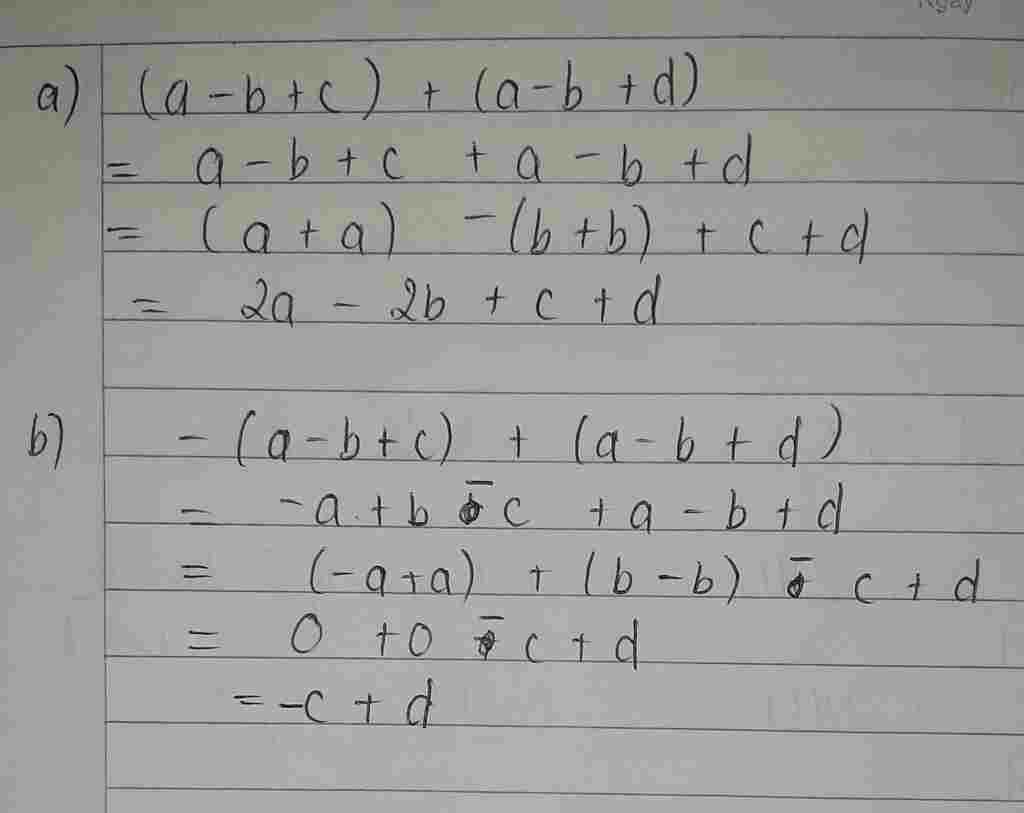 Ngày
a) (a - b + c) + (a - b + d)
= a - b + c + a - b + d
= (a + a) - (b + b) + c + d
= 2a - 2b + c + d
b) - (a - b + c) + (a - b + d)
= -a + b - c + a - b + d
= (-a + a) + (b - b) - c + d
= 0 + 0 - c + d
= -c + d